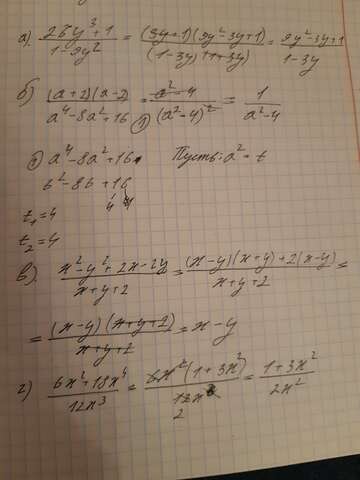 а). (26y³+1)/(1-9y²) = ((3y+1)(9y²-3y+1))/((1-3y)(1+3y)) = (9y²-3y+1)/(1-3y)
б) ((a+2)(a-2))/(a⁴-8a²+16) = (a²-4)/((a²-4)²) = 1/(a²-4)
① a⁴-8a²+16 Пусть: a²=t
t²-8t+16
4 4
t₁=4
t₂=4
в). (x²-y²+2x-2y)/(x+y+2) = ((x-y)(x+y)+2(x-y))/(x+y+2) =
= ((x-y)(x+y+2))/(x+y+2) = x-y
г) (6x²+18x⁴)/(12x³) = (6x²(1+3x²))/(12x³) = (1+3x²)/(2x²)
2